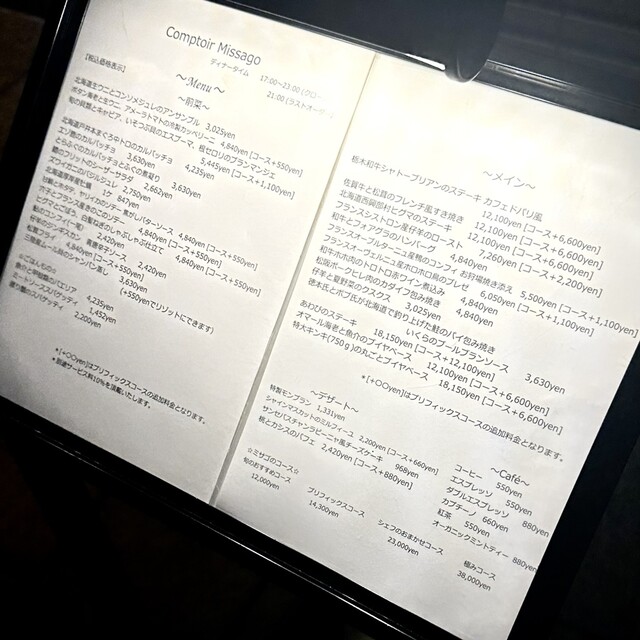 Comptoir Missago
ディナータイム 17:00~23:00 (クロー
21:00 (ラストオー
【税込価格表示】
～Menu～
～前菜～
北海道生ウニとコンソメジュレのアンサンブル 3,025yen
ボタン海老と生ウニ アメーラトマトの冷製カッペリーニ 4,840yen [コース+550yen]
旬の貝類とキャビア、いそつぶ貝のエスプーマ、根セロリのブランマンジェ
5,445yen [コース+1,100yen]
北海道戸井本まぐろ中トロのカルパッチョ 4,235yen
エゾ鹿のカルパッチョ 3,630yen
とらふぐのカルパッチョとふぐの煮凝り 3,630yen
鶏のフリットのシーザーサラダ 2,662yen
ズワイガニのバジルジュレ 2,750yen
北海道厚岸産牡蠣 1ケ 847yen
4,840yen [コース+550yen]
4,840yen [コース+550yen]
2,420yen
青唐辛子ソース 2,420yen
4,840yen [コース+550yen]
3,630yen
(+550yenでリゾットにできます)
☆ごはんもの☆
4,235yen
1,452yen
ミートソーススパゲッティ
2,200yen
*[+○○yen]はプリフィックスコースの追加料金となります。
*別途サービス料10%を頂戴いたします。
～メイン～
栃木和牛シャトーブリアンのステーキ カフェ ド パリ風
12,100yen [コース+6,600yen]
佐賀牛と松茸のフレンチ風すき焼き 12,100yen [コース+6,600yen]
北海道西興部村ヒグマのステーキ 7,260yen [コース+2,200yen]
フランスシストロン産仔羊のロースト
和牛とフォアグラのハンバーグ 4,840yen
フランスオーブルターニュ産鴨のコンフィ お好焼焼き添え 5,500yen [コース+1,100yen]
フランスオーヴェルニュ産ホロホロ鳥のブレゼ 6,050yen [コース+1,100yen]
和牛ホホ肉のトロトロ赤ワイン煮込み 4,840yen
松阪ポークヒレ肉のカダイフ包み焼き 4,840yen
仔羊と夏野菜のクスクス 3,025yen
徳本氏とボブ氏が北海道で釣り上げた鮭のパイ包み焼き
いくらのブールブランソース 3,630yen
あわびのステーキ 18,150yen [コース+12,100yen]
オマール海老と魚介のブイヤベース 12,100yen [コース+6,600yen]
特大キンキ(750g)の丸ごとブイヤベース 18,150yen [コース+6,600yen]
*[+○○yen]はプリフィックスコースの追加料金となります。
～デザート～
特製モンブラン 1,331yen
シャインマスカットのミルフィーユ 2,200yen [コース+660yen]
サンセバスチャンラビーニャ風チーズケーキ 968yen
桃とカシスのパフェ 2,420yen [コース+880yen]
～Café～
コーヒー 550yen
エスプレッソ 550yen
ダブルエスプレッソ 880yen
カプチーノ 660yen
紅茶 550yen
オーガニックミントティー 880yen
☆ミサゴのコース☆
旬のおすすめコース
12,000yen
プリフィックスコース
14,300yen
シェフのおまかせコース
23,000yen
極みコース
38,000yen